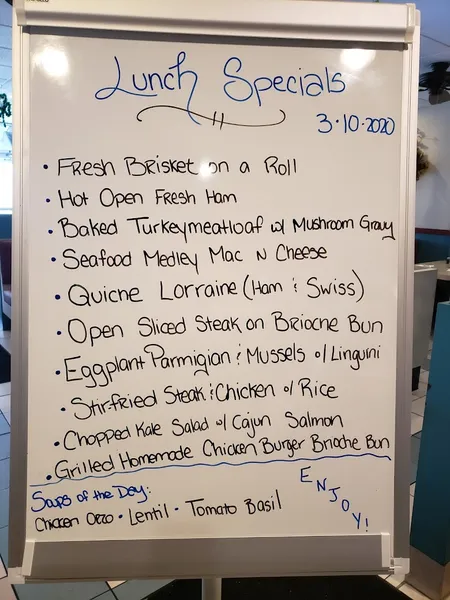 Lunch Specials
3·10·2020
• Fresh Brisket on a Roll
• Hot Open Fresh Ham
• Baked Turkeymeatloaf w/ Mushroom Gravy
• Seafood Medley Mac N Cheese
• Quiche Lorraine (Ham & Swiss)
• Open Sliced Steak on Brioche Bun
• Eggplant Parmigian & Mussels o/ Linguni
• Stir-fried Steak & Chicken o/ Rice
• Chopped Kale Salad w/ Cajun Salmon
• Grilled Homemade Chicken Burger Brioche Bun
Soups of the Day:
Chicken Orzo • Lentil • Tomato Basil
ENJOY!